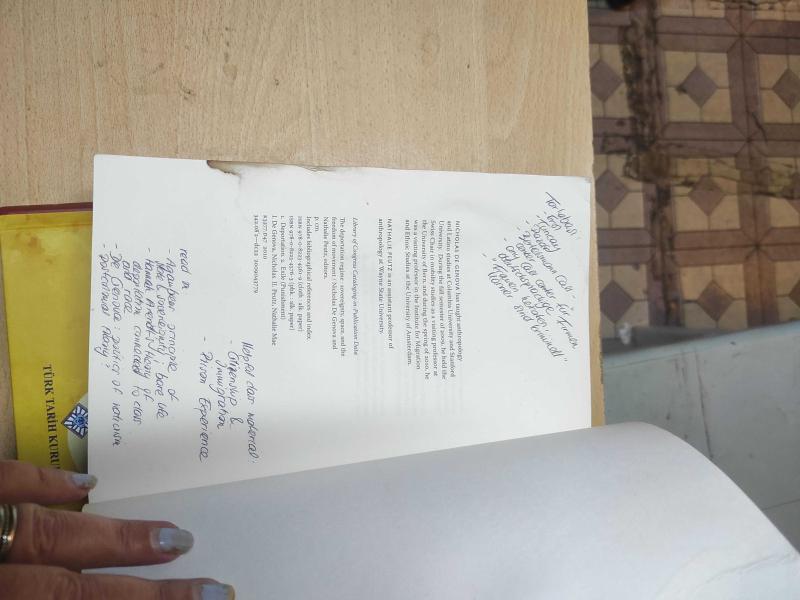 NICHOLAS DE GENOVA has taught anthropology
and Latino studies at Columbia University and Stanford
University. During the fall semester of 2009, he held the
Swiss Chair in mobility studies as a visiting professor at
the University of Bern, and during the spring of 2010, he
was a visiting professor in the Institute for Migration
and Ethnic Studies at the University of Amsterdam.
NATHALIE PEUTZ is an assistant professor of
anthropology at Wayne State University.
Library of Congress Cataloging-in-Publication Data
The deportation regime : sovereignty, space, and the
freedom of movement / Nicholas De Genova and
Nathalie Peutz, editors.
p. cm.
Includes bibliographical references and index.
ISBN 978-0-8223-4561-9 (cloth : alk. paper)
ISBN 978-0-8223-4576-3 (pbk. : alk. paper)
1. Deportation. 2. Exile (Punishment)
I. De Genova, Nicholas. II. Peutz, Nathalie Mae
K3277.D47 2010
342.08'2—dc22 2009043779
Helpful class material:
- Citizenship &
immigration
- Prison Experience
- read in
- Agamben's principle of
state & sovereignty : bare life
- Hannah Arendt's theory of
deportation connected to class
and race
- De Genova : politics of nativism
TÜRK TARİH KURU